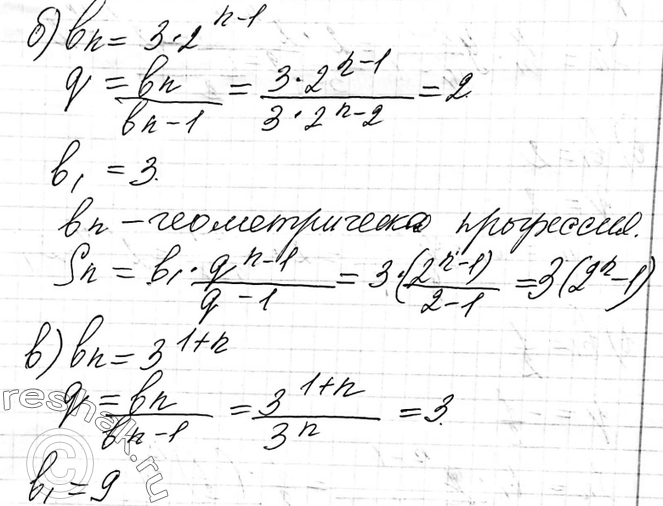 б) bn = 3·2^(n-1)
q = bn/(bn-1) = (3·2^(n-1))/(3·2^(n-2)) = 2.
b1 = 3.
bn – геометрическа прогрессия.
Sn = b1·q^(n-1)/(q-1) = 3·(2^(n-1))/(2-1) = 3(2^n-1)
в) bn = 3^(1+n)
q = bn/(bn-1) = 3^(1+n)/3^n = 3.
b1 = 9
©reshak.ru